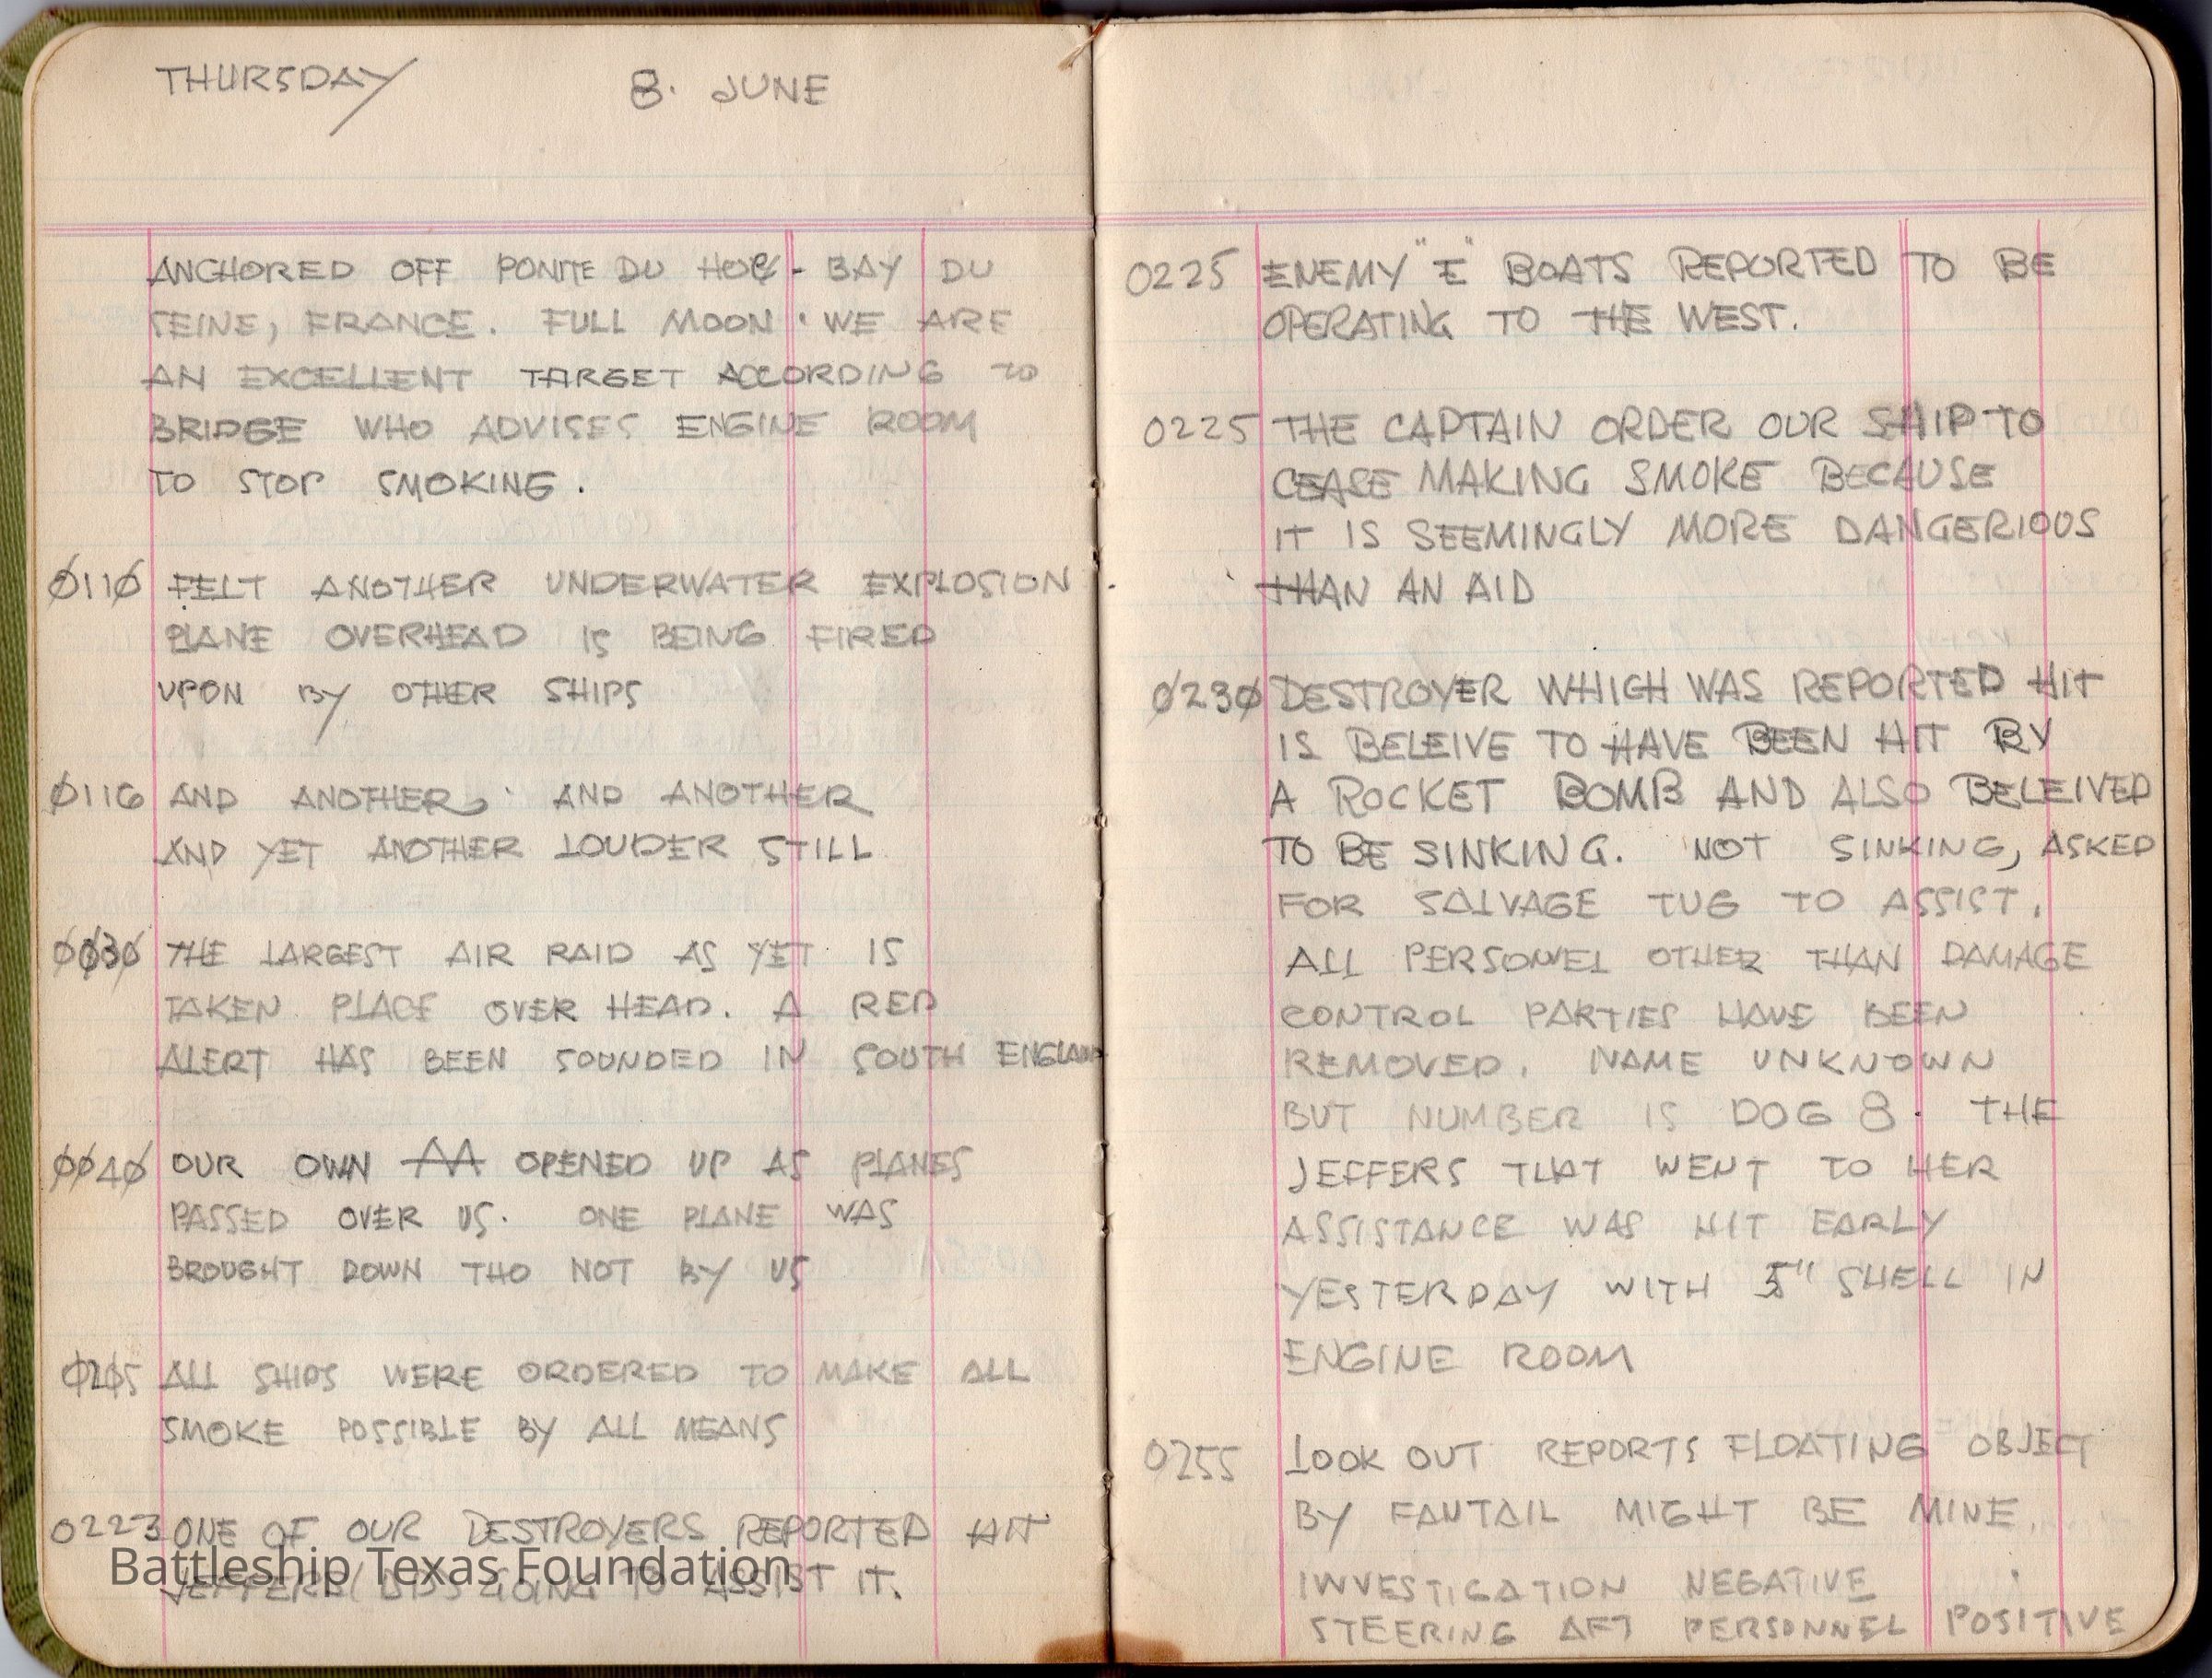 THURSDAY 8. JUNE
ANCHORED OFF PONITE DU HOE - BAY DU
SEINE, FRANCE. FULL MOON. WE ARE
AN EXCELLENT TARGET ACCORDING TO
BRIDGE WHO ADVISES ENGINE ROOM
TO STOP SMOKING.
0110 FELT ANOTHER UNDERWATER EXPLOSION.
PLANE OVERHEAD IS BEING FIRED
UPON BY OTHER SHIPS
0116 AND ANOTHER. AND ANOTHER
AND YET ANOTHER LOUDER STILL
0030 THE LARGEST AIR RAID AS YET IS
TAKEN PLACE OVER HEAD. A RED
ALERT HAS BEEN SOUNDED IN SOUTH ENGLAND
0040 OUR OWN AA OPENED UP AS PLANES
PASSED OVER US. ONE PLANE WAS
BROUGHT DOWN THO NOT BY US
0205 ALL SHIPS WERE ORDERED TO MAKE ALL
SMOKE POSSIBLE BY ALL MEANS
0223 ONE OF OUR DESTROYERS REPORTED HIT
JEFFERS GOING TO ASSIST IT.
Battleship Texas Foundation
0225 ENEMY "E" BOATS REPORTED TO BE
OPERATING TO THE WEST.
0225 THE CAPTAIN ORDER OUR SHIP TO
CEASE MAKING SMOKE BECAUSE
IT IS SEEMINGLY MORE DANGERIOUS
THAN AN AID
0230 DESTROYER WHICH WAS REPORTED HIT
IS BELEIVE TO HAVE BEEN HIT BY
A ROCKET BOMB AND ALSO BELEIVED
TO BE SINKING. NOT SINKING, ASKED
FOR SALVAGE TUG TO ASSIST.
ALL PERSONNEL OTHER THAN DAMAGE
CONTROL PARTIES HAVE BEEN
REMOVED. NAME UNKNOWN
BUT NUMBER IS DOG 8. THE
JEFFERS THAT WENT TO HER
ASSISTANCE WAS HIT EARLY
YESTERDAY WITH 5" SHELL IN
ENGINE ROOM
0255 LOOK OUT REPORTS FLOATING OBJECT
BY FANTAIL MIGHT BE MINE.
INVESTIGATION NEGATIVE
STEERING AFT PERSONNEL POSITIVE